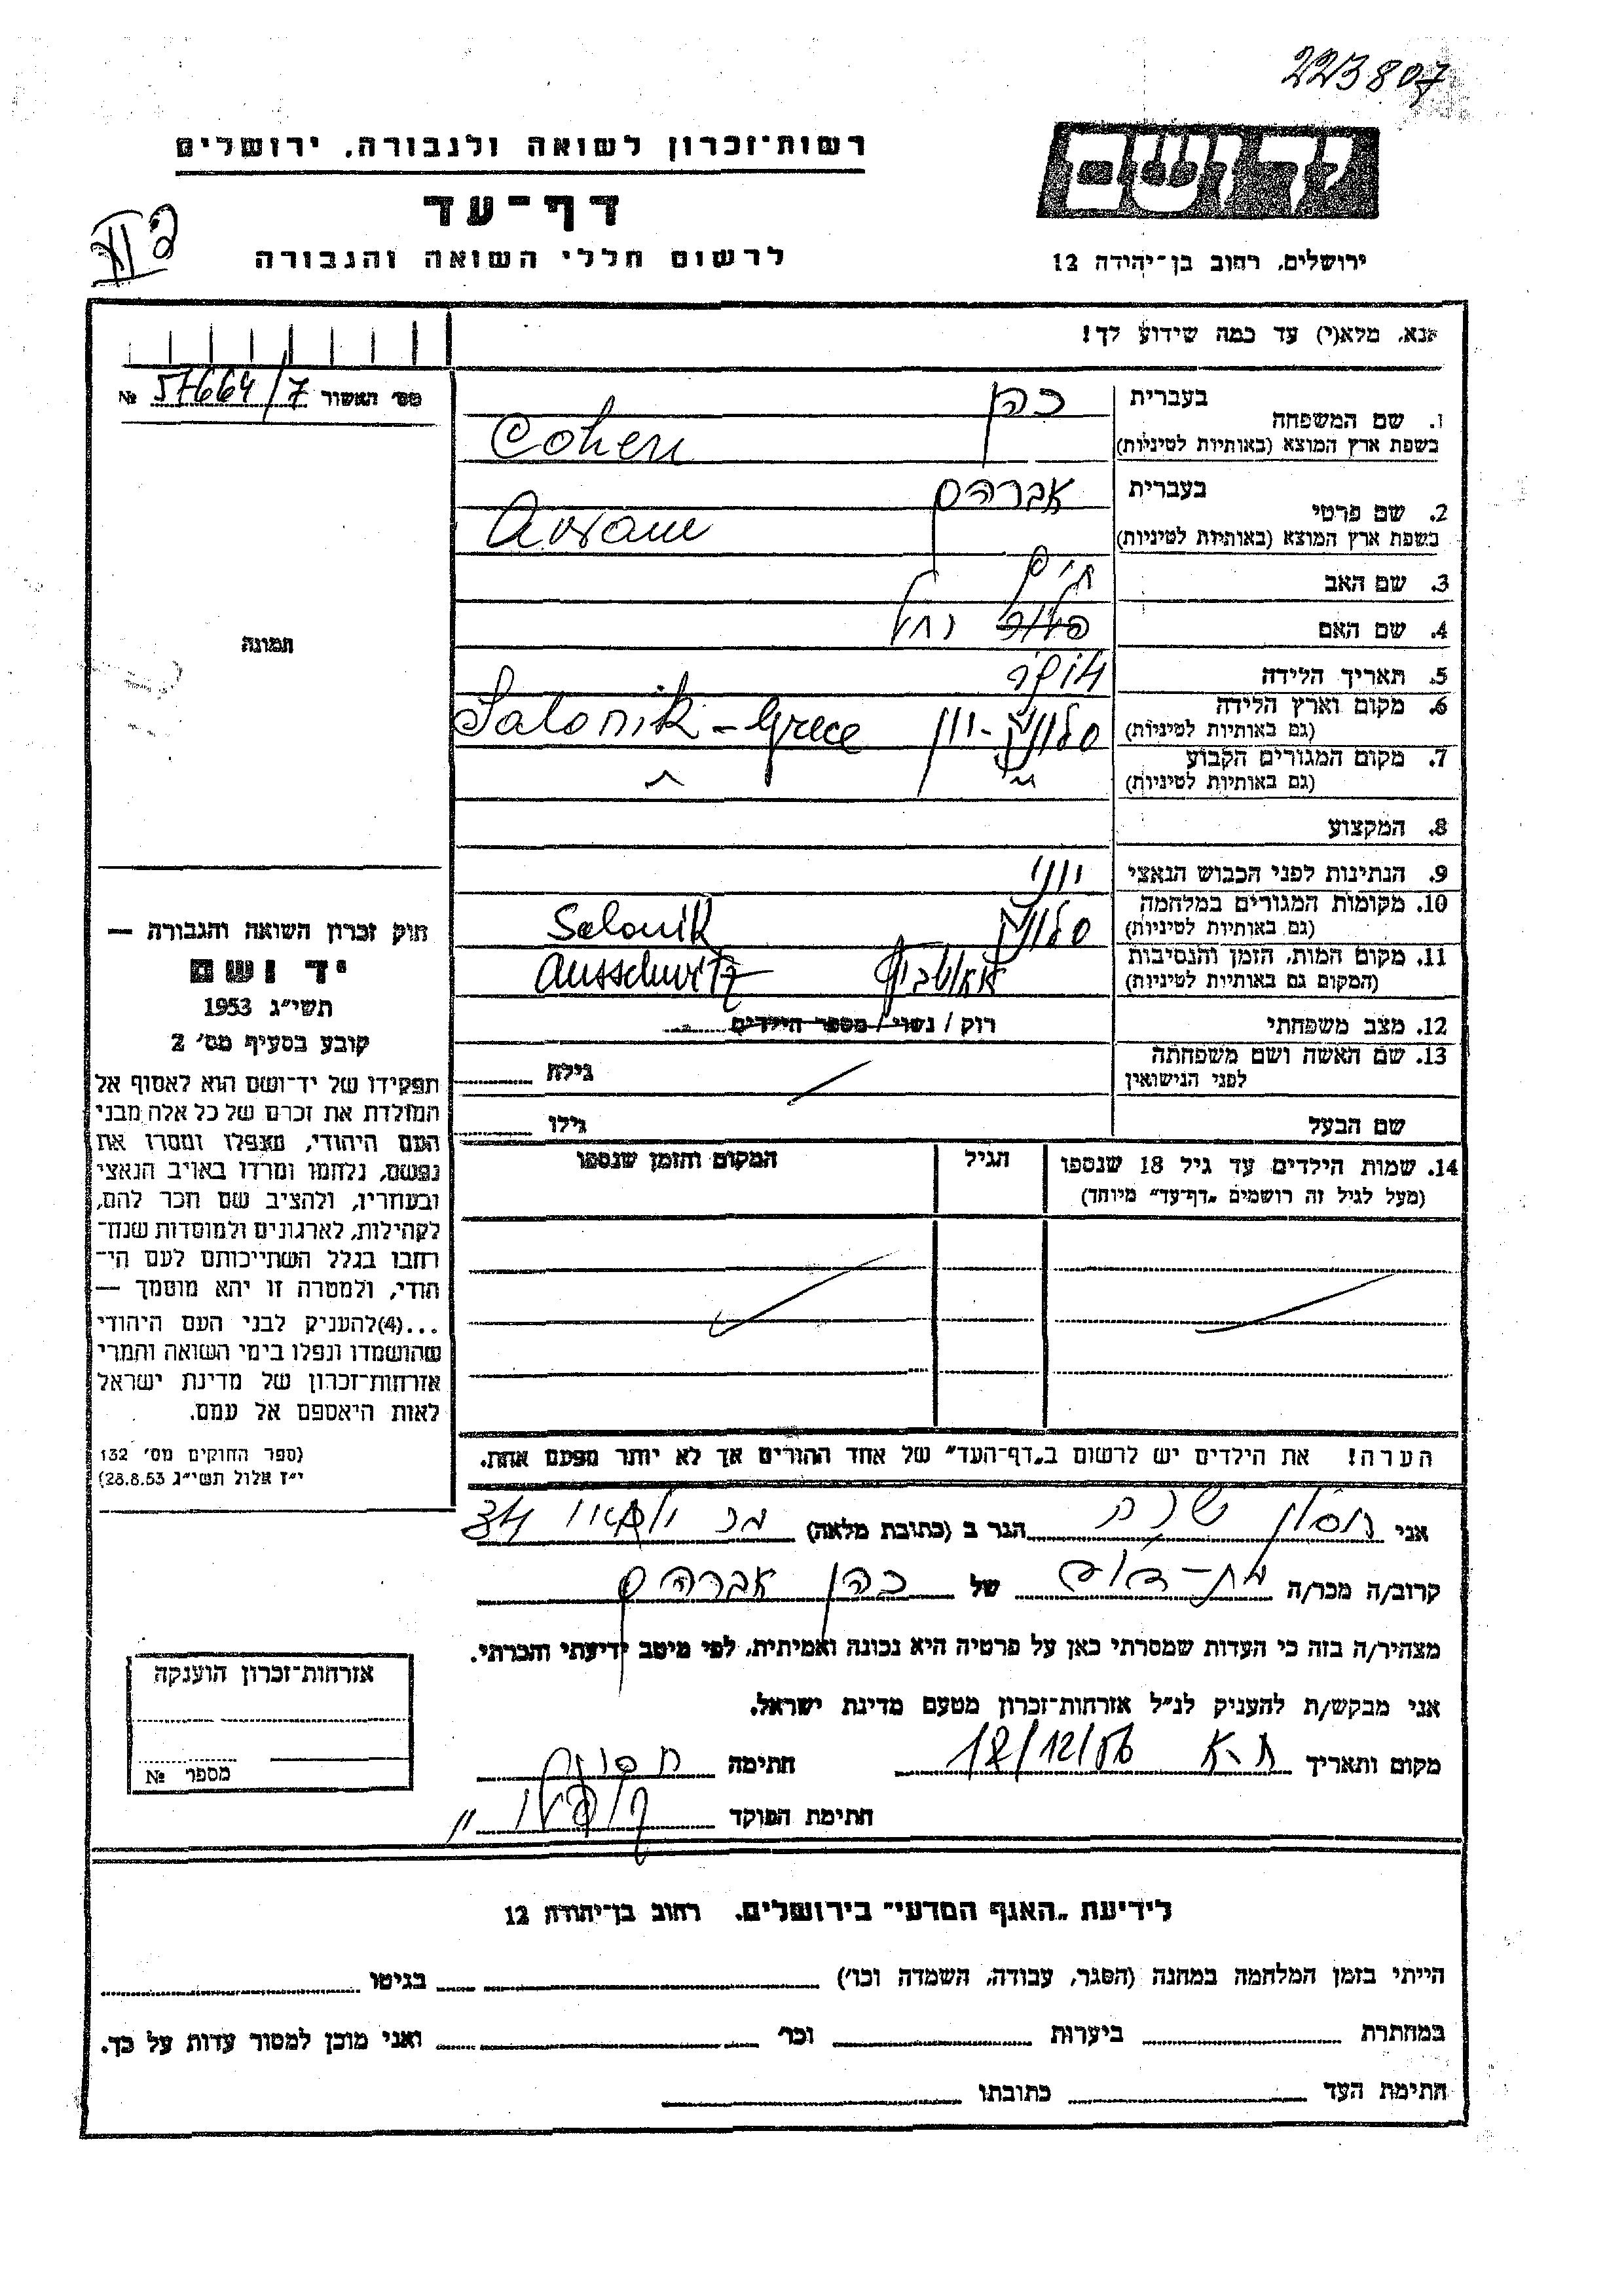 223807
יד ושם
רשות־זכרון לשואה ולגבורה, ירושלים
דף־עד
לרשום חללי השואה והגבורה
ירושלים, רחוב בן־יהודה 12
אנא, מלא(י) עד כמה שידוע לך!
מס׳ האשור 57664/7 №
תמונה
1. שם המשפחה
בעברית כהן
בשפת ארץ המוצא (באותיות לטיניות) Cohen
2. שם פרטי
בעברית אברהם
בשפת ארץ המוצא (באותיות לטיניות) Avram
3. שם האב חיים
4. שם האם רחל
5. תאריך הלידה
6. מקום וארץ הלידה
(גם באותיות לטיניות) סלוניק - יוון Salonik - Grece
7. מקום המגורים הקבוע
(גם באותיות לטיניות) ״
8. המקצוע
9. הנתינות לפני הכבוש הנאצי יווני
10. מקומות המגורים במלחמה
(גם באותיות לטיניות) סלוניק Salonik
11. מקום המות, הזמן והנסיבות
(המקום גם באותיות לטיניות) אאושביץ Ausschwitz
12. מצב משפחתי רוק / נשוי / מספר הילדים
13. שם האשה ושם משפחתה
לפני הנישואין גילה
שם הבעל גילו
14. שמות הילדים עד גיל 18 שנספו הגיל המקום והזמן שנספו
(מעל לגיל זה רושמים „דף־עד״ מיוחד)
הערה! את הילדים יש לרשום ב„דף־העד״ של אחד ההורים אך לא יותר מפעם אחת.
חוק זכרון השואה והגבורה —
יד ושם
תשי״ג 1953
קובע בסעיף מס׳ 2
תפקידו של יד־ושם הוא לאסוף אל
המולדת את זכרם של כל אלה מבני
העם היהודי, שנפלו ומסרו את
נפשם, נלחמו ומרדו באויב הנאצי
ובעוזריו, ולהציב שם וזכר להם,
לקהילות, לארגונים ולמוסדות שנח־
רבו בגלל השתייכותם לעם הי־
הודי, ולמטרה זו יהא מוסמך —
...(4)להעניק לבני העם היהודי
שהושמדו ונפלו בימי השואה והמרי
אזרחות־זכרון של מדינת ישראל
לאות היאספם אל עמם.
(ספר החוקים מס׳ 132
י״ז אלול תשי״ג 28.8.53)
אני חסון שרה הגר ב (כתובת מלאה) 34
קרוב/ה מכר/ה בת-דוד של כהן אברהם
מצהיר/ה בזה כי העדות שמסרתי כאן על פרטיה היא נכונה ואמיתית, לפי מיטב ידיעתי והכרתי.
אני מבקש/ת להעניק לנ״ל אזרחות־זכרון מטעם מדינת ישראל.
מקום ותאריך ת-א 12/12/56 חתימה חסון
חתימת הפוקד
אזרחות־זכרון הוענקה
מספר №
לידיעת „האגף המדעי״ בירושלים. רחוב בן־יהודה 12
הייתי בזמן המלחמה במחנה (הסגר, עבודה, השמדה וכו׳) בגיטו
במחתרת ביערות וכו׳ ואני מוכן למסור עדות על כך.
חתימת העד כתובתו